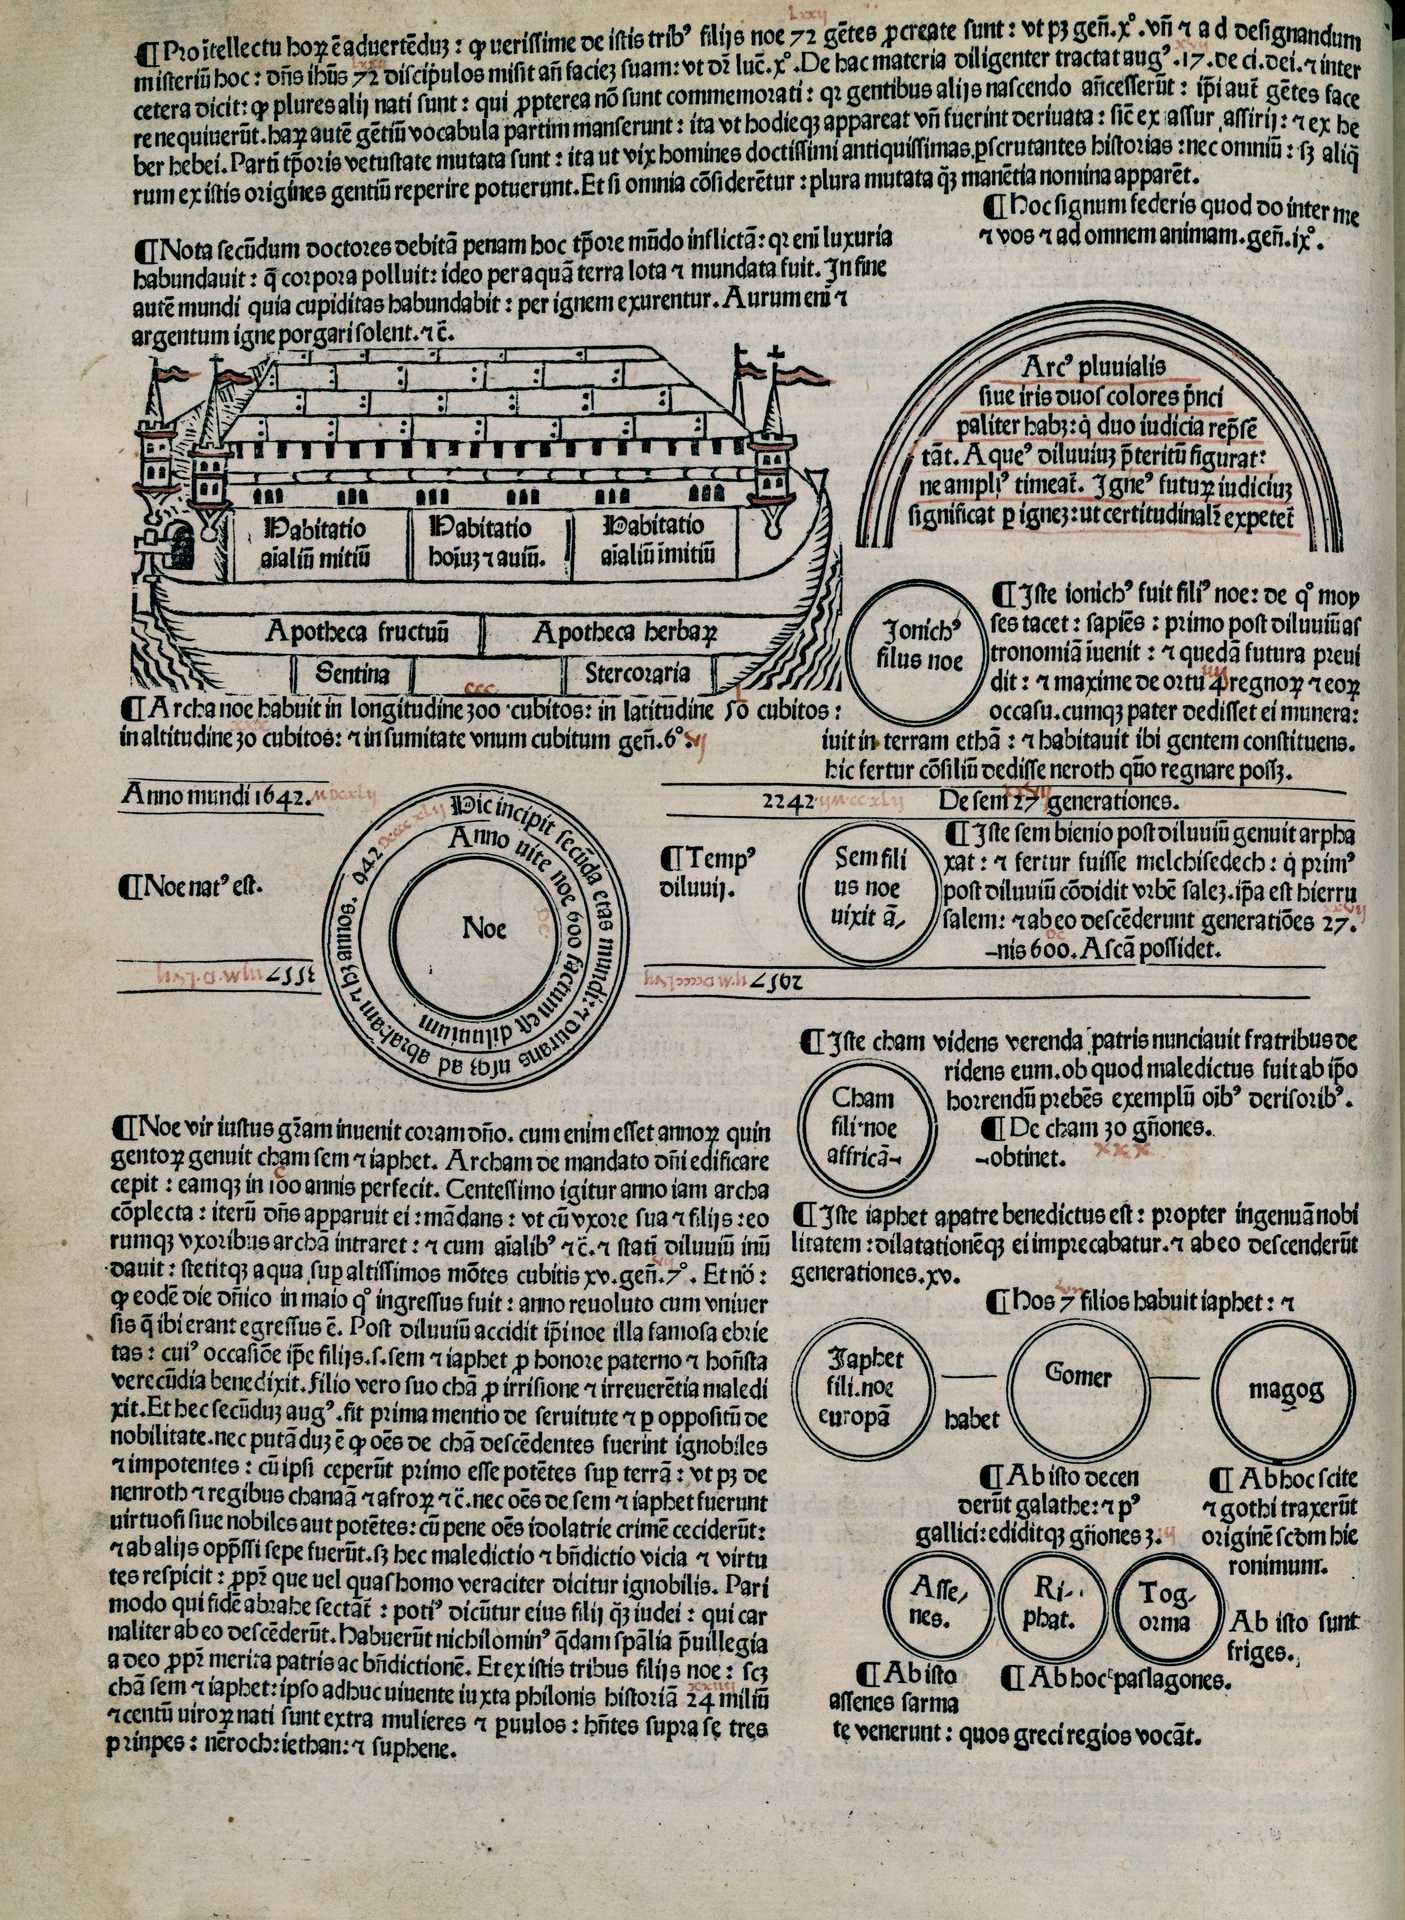 ¶ Pro ītellectu hoꝝ ē aduertēduꝫ : ꝙ uerissime de istis tribꝰ filijs noe 72 gētes ꝓcreate sunt : vt pꝫ geñ.xͦ. vñ ⁊ ad designandum
misteriū hoc : dñs ihūs 72 discipulos misit añ facieꝫ suam : vt dr̄ luc̄.xͦ. De hac materia diligenter tractat augꝰ.17. de ci.dei. ⁊ inter
cetera dicit : ꝙ plures alij nati sunt : qui ꝓpterea nō sunt commemorati : qꝛ gentibus alijs nascendo añcesserūt : ip̄i aut̄ gētes face
re nequiuerūt. haꝝ autē gētiū vocabula partim manserunt : ita vt hodieqꝫ appareat vñ fuerint deriuata : sic̄ ex assur assirij : ⁊ ex he
ber hebei. Partī tp̄oris vetustate mutata sunt : ita ut vix homines doctissimi antiquissimas ꝑscrutantes historias : nec omniū : sꝫ aliq̄
rum ex istis origines gentiū reperire potuerunt. Et si omnia cōsiderētur : plura mutata qꝫ̄ manētia nomina apparēt.
¶ Hoc signum federis quod do inter me
⁊ vos ⁊ ad omnem animam. geñ.ixͦ.
¶ Nota secūdum doctores debitā penam hoc tp̄ore mūdo inflictā : qꝛ eni luxuria
habundauit : q̄ corpora polluit : ideo per aquā terra lota ⁊ mundata fuit. In fine
autē mundi quia cupiditas habundabit : per ignem exurentur. Aurum enī ⁊
argentum igne porgari solent. ⁊ c̄.
Arcꝰ pluuialis
siue iris duos colores p̄nci
paliter habꝫ : q̇ duo iudicia rep̄se
tāt. Aqueꝰ diluuiuꝫ p̄teritū figurat :
ne ampliꝰ timeat̄. Igneꝰ futuꝝ iudiciuꝫ
significat ꝑ igneꝫ : ut certitudinalr̄ expetet̄
Habitatio
aīaliū mitiū
Habitatio
hoīuꝫ ⁊ auiū.
Habitatio
aīaliū īmitiū
Apotheca fructuū
Apotheca herbaꝝ
Sentina
Stercoraria
¶ Archa noe habuit in longitudine 300 cubitos : in latitudine 50 cubitos :
in altitudine 30 cubitos : ⁊ in sumitate vnum cubitum geñ.6ͦ.
Jonichꝰ
filus noe
¶ Iste ionichꝰ fuit filiꝰ noe : de qͦ moy
ses tacet : sapiēs : primo post diluuiū as
tronomiā īuenit : ⁊ quedā futura preui
dit : ⁊ maxime de ortu 4 regnoꝝ ⁊ eoꝝ
occasu. cumqꝫ pater dedisset ei munera :
iuit in terram ethā : ⁊ habitauit ibi gentem constituens.
hic fertur cōsiliū dedisse neroth qūo regnare possꝫ.
Anno mundi 1642.
2242
De sem 27 generationes.
¶ Noe natꝰ est.
Hic incipit secūda etas mundi : ⁊ durans usqꝫ ad abraham ⁊ hꝫ annos. 942
Anno uite noe 600 factum est diluuium
Noe
¶ Tempꝰ
diluuij.
Sem fili
us noe
uixit ā,
¶ Iste sem bienio post diluuiū genuit arpha
xat : ⁊ fertur fuisse melchisedech : q̇ primꝰ
post diluuiū cōdidit vrbē saleꝫ. ip̄a est hierru
salem : ⁊ ab eo descēderunt generatiōes 27.
–nis 600. Ascā possidet.
3557
2957
¶ Iste cham videns verenda patris nunciauit fratribus de
ridens eum. ob quod maledictus fuit ab ip̄o
horrendū prebēs exemplū oībꝰ derisoribꝰ.
Cham
fili·noe
affricā–
¶ De cham 30 gñones.
–obtinet.
¶ Iste iaphet a patre benedictus est : propter ingenuā nobi
litatem : dilatationēqꝫ ei imprecabatur. ⁊ ab eo descenderūt
generationes. xv.
¶ Hos 7 filios habuit iaphet : ⁊
Japhet
fili.noe
europā
habet
Gomer
magog
¶ Ab isto decen
derūt galathe : ⁊ pꝰ
gallici : ediditqꝫ gñones 3.
¶ Ab hoc scite
⁊ gothi traxerūt
originē scdm hie
ronimum.
Asse,
nes.
Ri-
phat.
Tog-
orma
Ab isto sunt
friges.
¶ Ab isto
assenes sarma
te venerunt : quos greci regios vocāt.
¶ Ab hoc paflagones.
¶ Noe vir iustus gr̄am inuenit coram dño. cum enim esset annoꝝ quin
gentoꝝ genuit cham sem ⁊ iaphet. Archam de mandato dñi edificare
cepit : eamqꝫ in 100 annis perfecit. Centessimo igitur anno iam archa
cōplecta : iterū dñs apparuit ei : mādans : vt cū vxore sua ⁊ filijs : eo
rumqꝫ vxoribus archā intraret : ⁊ cum aīalibꝰ ⁊ c̄. ⁊ statī diluuiū inū
dauit : stetitqꝫ aqua suꝑ altissimos mōtes cubitis xv. geñ.7ͦ. Et nō :
ꝙ eodē die dñico in maio qͦ ingressus fuit : anno reuoluto cum vniuer
sis q̄ ibi erant egressus ē. Post diluuiū accidit ip̄i noe illa famosa ebrie
tas : cuiꝰ occasiōe ip̄e filijs. s. sem ⁊ iaphet ꝓ honore paterno ⁊ hoñsta
verecūdia benedixit. filio vero suo chā ꝓ irrisione ⁊ irreuerētia maledi
xit. Et hec secūduꝫ augꝰ. fit prima mentio de seruitute ⁊ ꝑ oppositū de
nobilitate. nec putāduꝫ ē ꝙ oēs de chā descēdentes fuerint ignobiles
⁊ impotentes : cū ipsi ceperūt primo esse potētes suꝑ terrā : vt pꝫ de
nenroth ⁊ regibus chanaā ⁊ afroꝝ ⁊ c̄. nec oēs de sem ⁊ iaphet fuerunt
uirtuosi siue nobiles aut potētes : cū pene oēs idolatrie crimē ceciderūt :
⁊ ab alijs opp̄ssi sepe fuerūt. sꝫ hec maledictio ⁊ bñdictio vicia ⁊ virtu
tes respicit : ꝓpꝛ̄ que uel quas homo veraciter dicitur ignobilis. Pari
modo qui fidē abrahe sectāt̄ : potiꝰ dicūtur eius filij qꝫ̄ iudei : qui car
naliter ab eo descēderūt. Habuerūt nichilominꝰ q̄dam sp̄alia p̄uillegia
a deo ꝓpꝛ̄ merita patris ac bñdictionē. Et ex istis tribus filijs noe : scꝫ
chā sem ⁊ iaphet : ipso adhuc uiuente iuxta philonis historiā 24 miliū
⁊ centū uiroꝝ nati sunt extra mulieres ⁊ ꝑuulos : hñtes supra se tres
prīnpes : nēroch : iethan : ⁊ suphene.